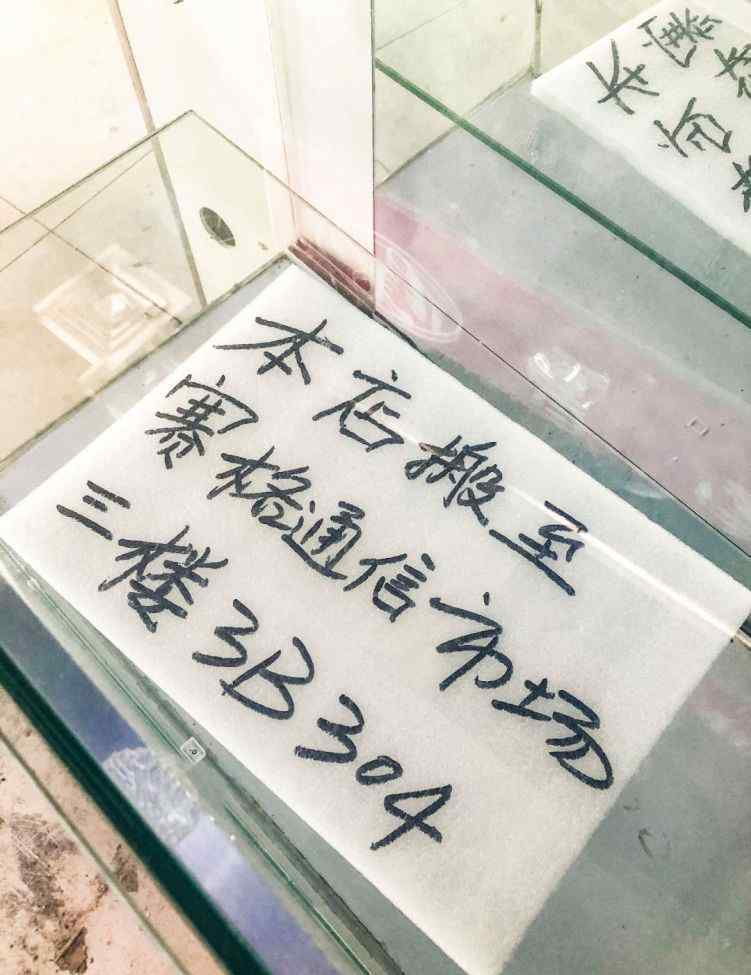 本店搬至
赛格通信市场
三楼3B304
本